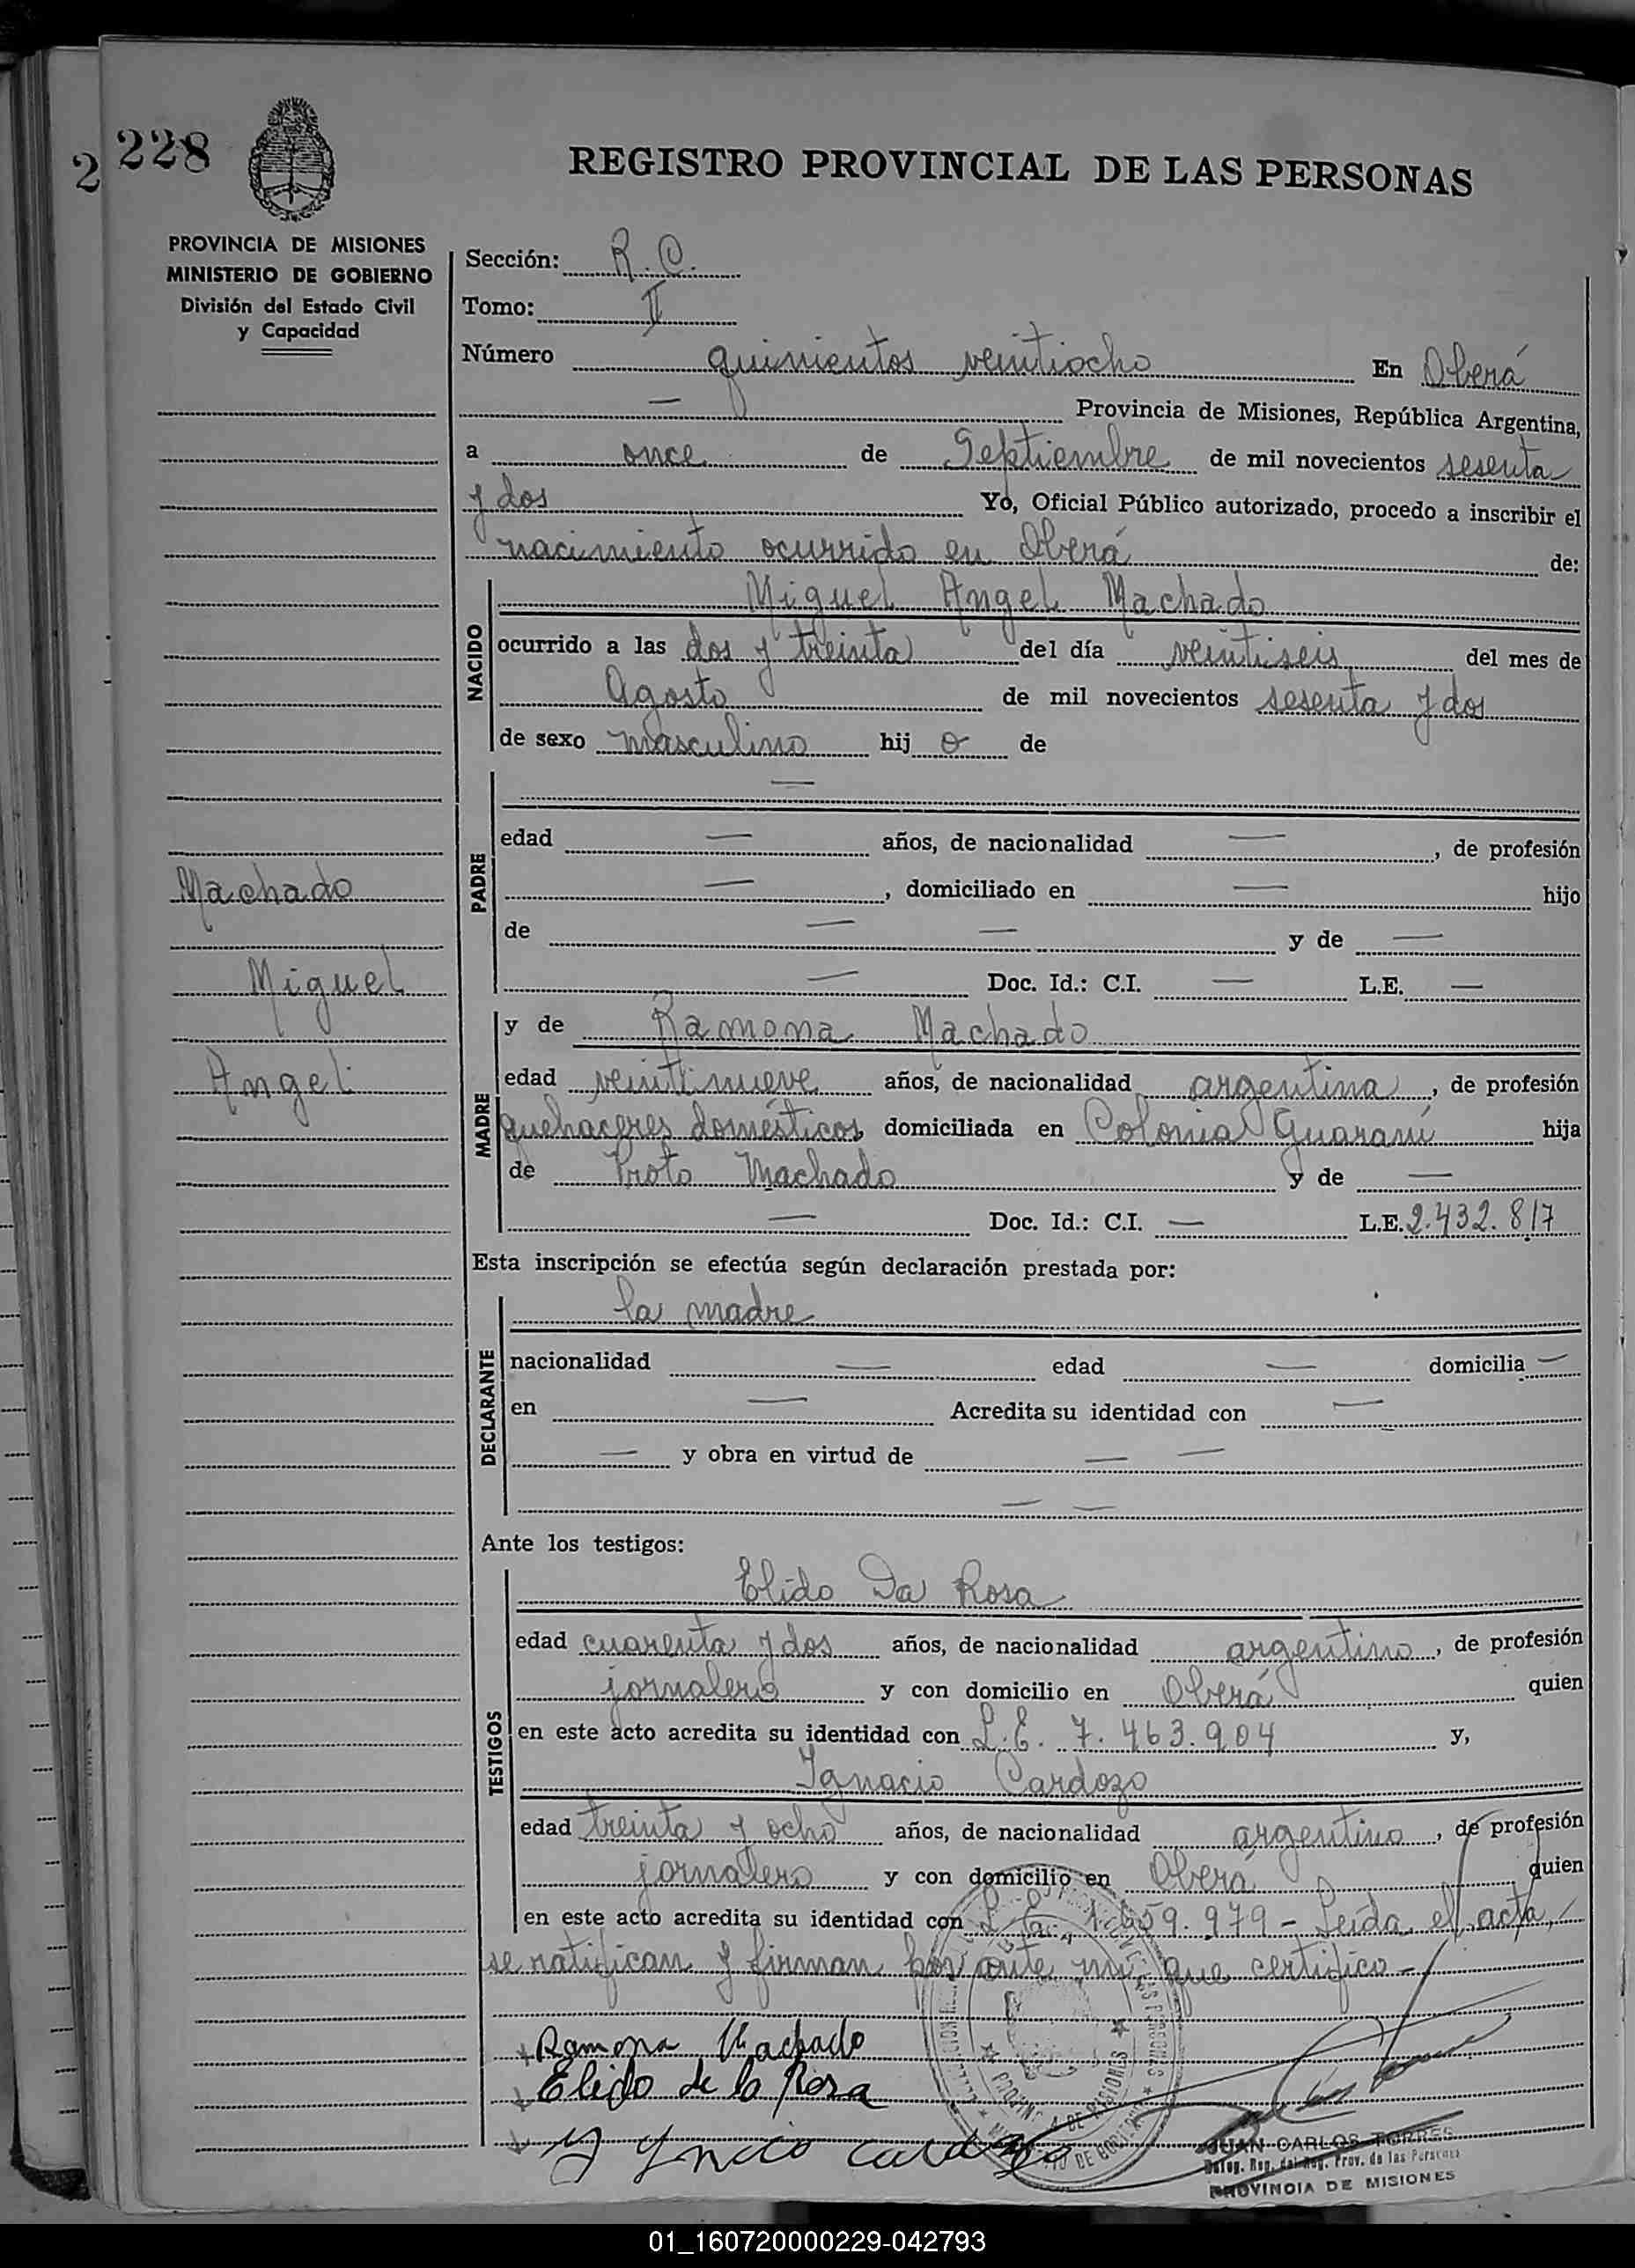 2 228
REGISTRO PROVINCIAL DE LAS PERSONAS
PROVINCIA DE MISIONES
MINISTERIO DE GOBIERNO
División del Estado Civil
y Capacidad
Sección: R. C.
Tomo: II
Número quinientos veintiocho En Oberá
— Provincia de Misiones, República Argentina,
a once de Septiembre de mil novecientos sesenta
y dos Yo, Oficial Público autorizado, procedo a inscribir el
nacimiento ocurrido en Oberá de:
NACIDO
Miguel Angel Machado
ocurrido a las dos y treinta del día veintiseis del mes de
Agosto de mil novecientos sesenta y dos
de sexo masculino hij o de
PADRE
—
edad — años, de nacionalidad —, de profesión
—, domiciliado en — hijo
de — — y de —
— Doc. Id.: C.I. — L.E. —
Machado
Miguel
Angel
MADRE
y de Ramona Machado
edad veintinueve años, de nacionalidad argentina, de profesión
quehaceres domésticos, domiciliada en Colonia Guaraní hija
de Proto Machado y de —
— Doc. Id.: C.I. — L.E. 2.432.817
Esta inscripción se efectúa según declaración prestada por:
DECLARANTE
la madre
nacionalidad — edad — domicilia —
en — Acredita su identidad con —
— y obra en virtud de — —
— —
Ante los testigos:
TESTIGOS
Elido Da Rosa
edad cuarenta y dos años, de nacionalidad argentino, de profesión
jornalero y con domicilio en Oberá quien
en este acto acredita su identidad con L.E. 7.463.904 y,
Ignacio Cardozo
edad treinta y ocho años, de nacionalidad argentino, de profesión
jornalero y con domicilio en Oberá quien
en este acto acredita su identidad con L.E. 1.659.979 - Leida el acta,
se ratifican y firman por ante mi, que certifico -
Ramona Machado
Elido de la Rosa
PROVINCIA DE MISIONES
JUAN CARLOS TORRES
Deleg. Reg. del Reg. Prov. de las Personas
PROVINCIA DE MISIONES
01_160720000229-042793